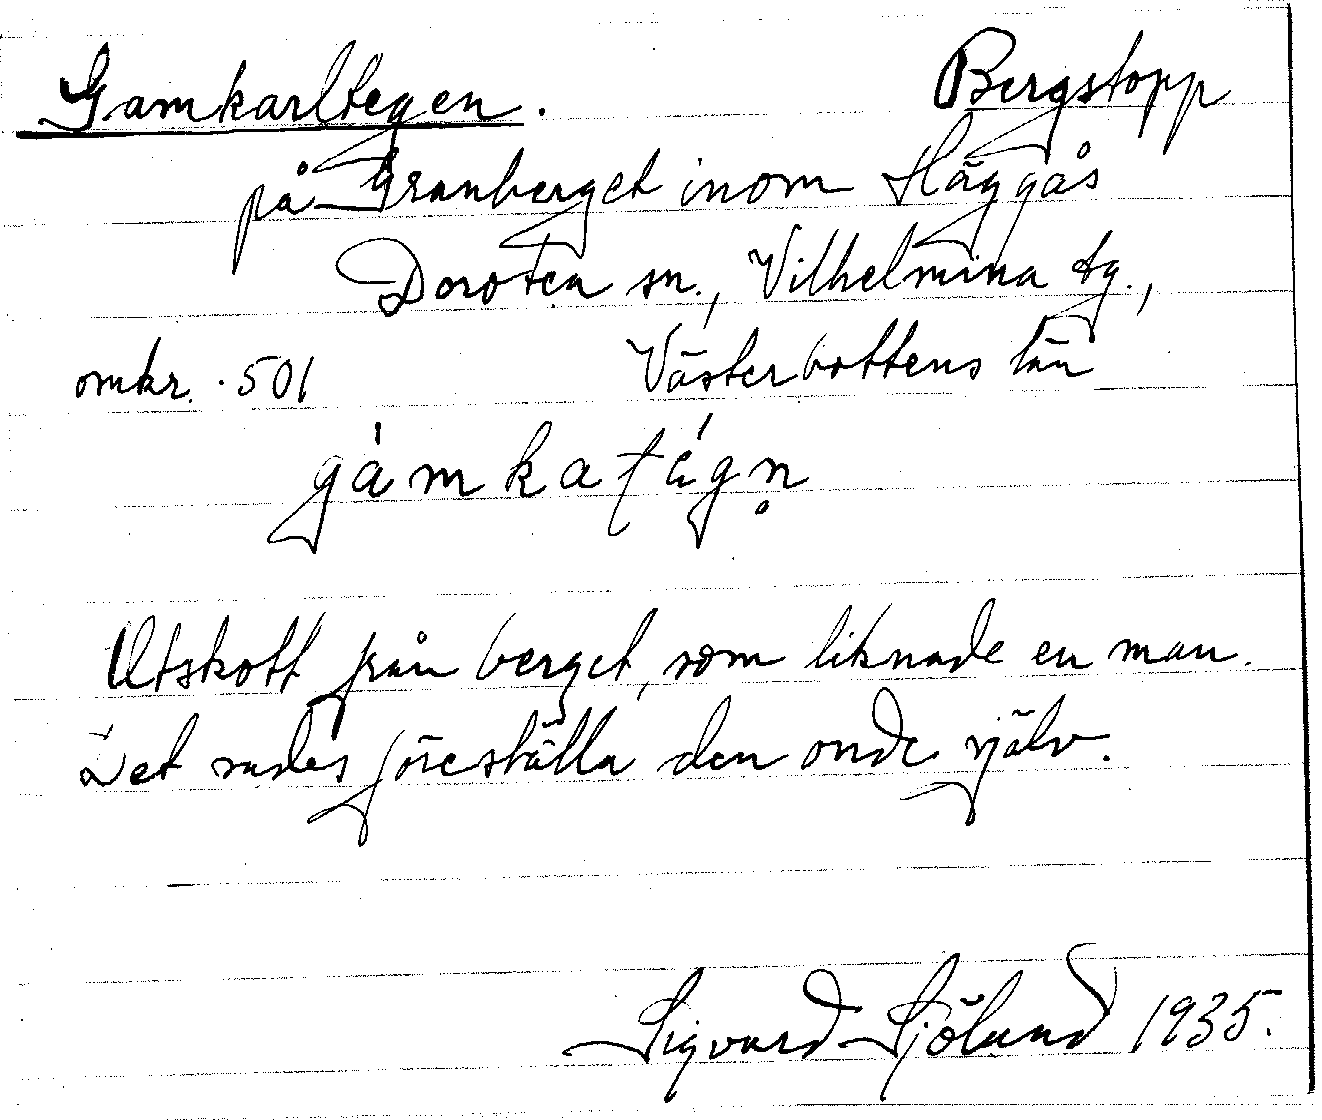 Gamkarltegen. Bergstopp
på Granberget inom Häggås
Dorotea sn., Vilhelmina tg.,
omkr. 501 Västerbottens län
gámkatégn̥
Utskott från berget, som liknade en man.
Det sades föreställa den onde själv.
Sigvard Sjölund 1935.